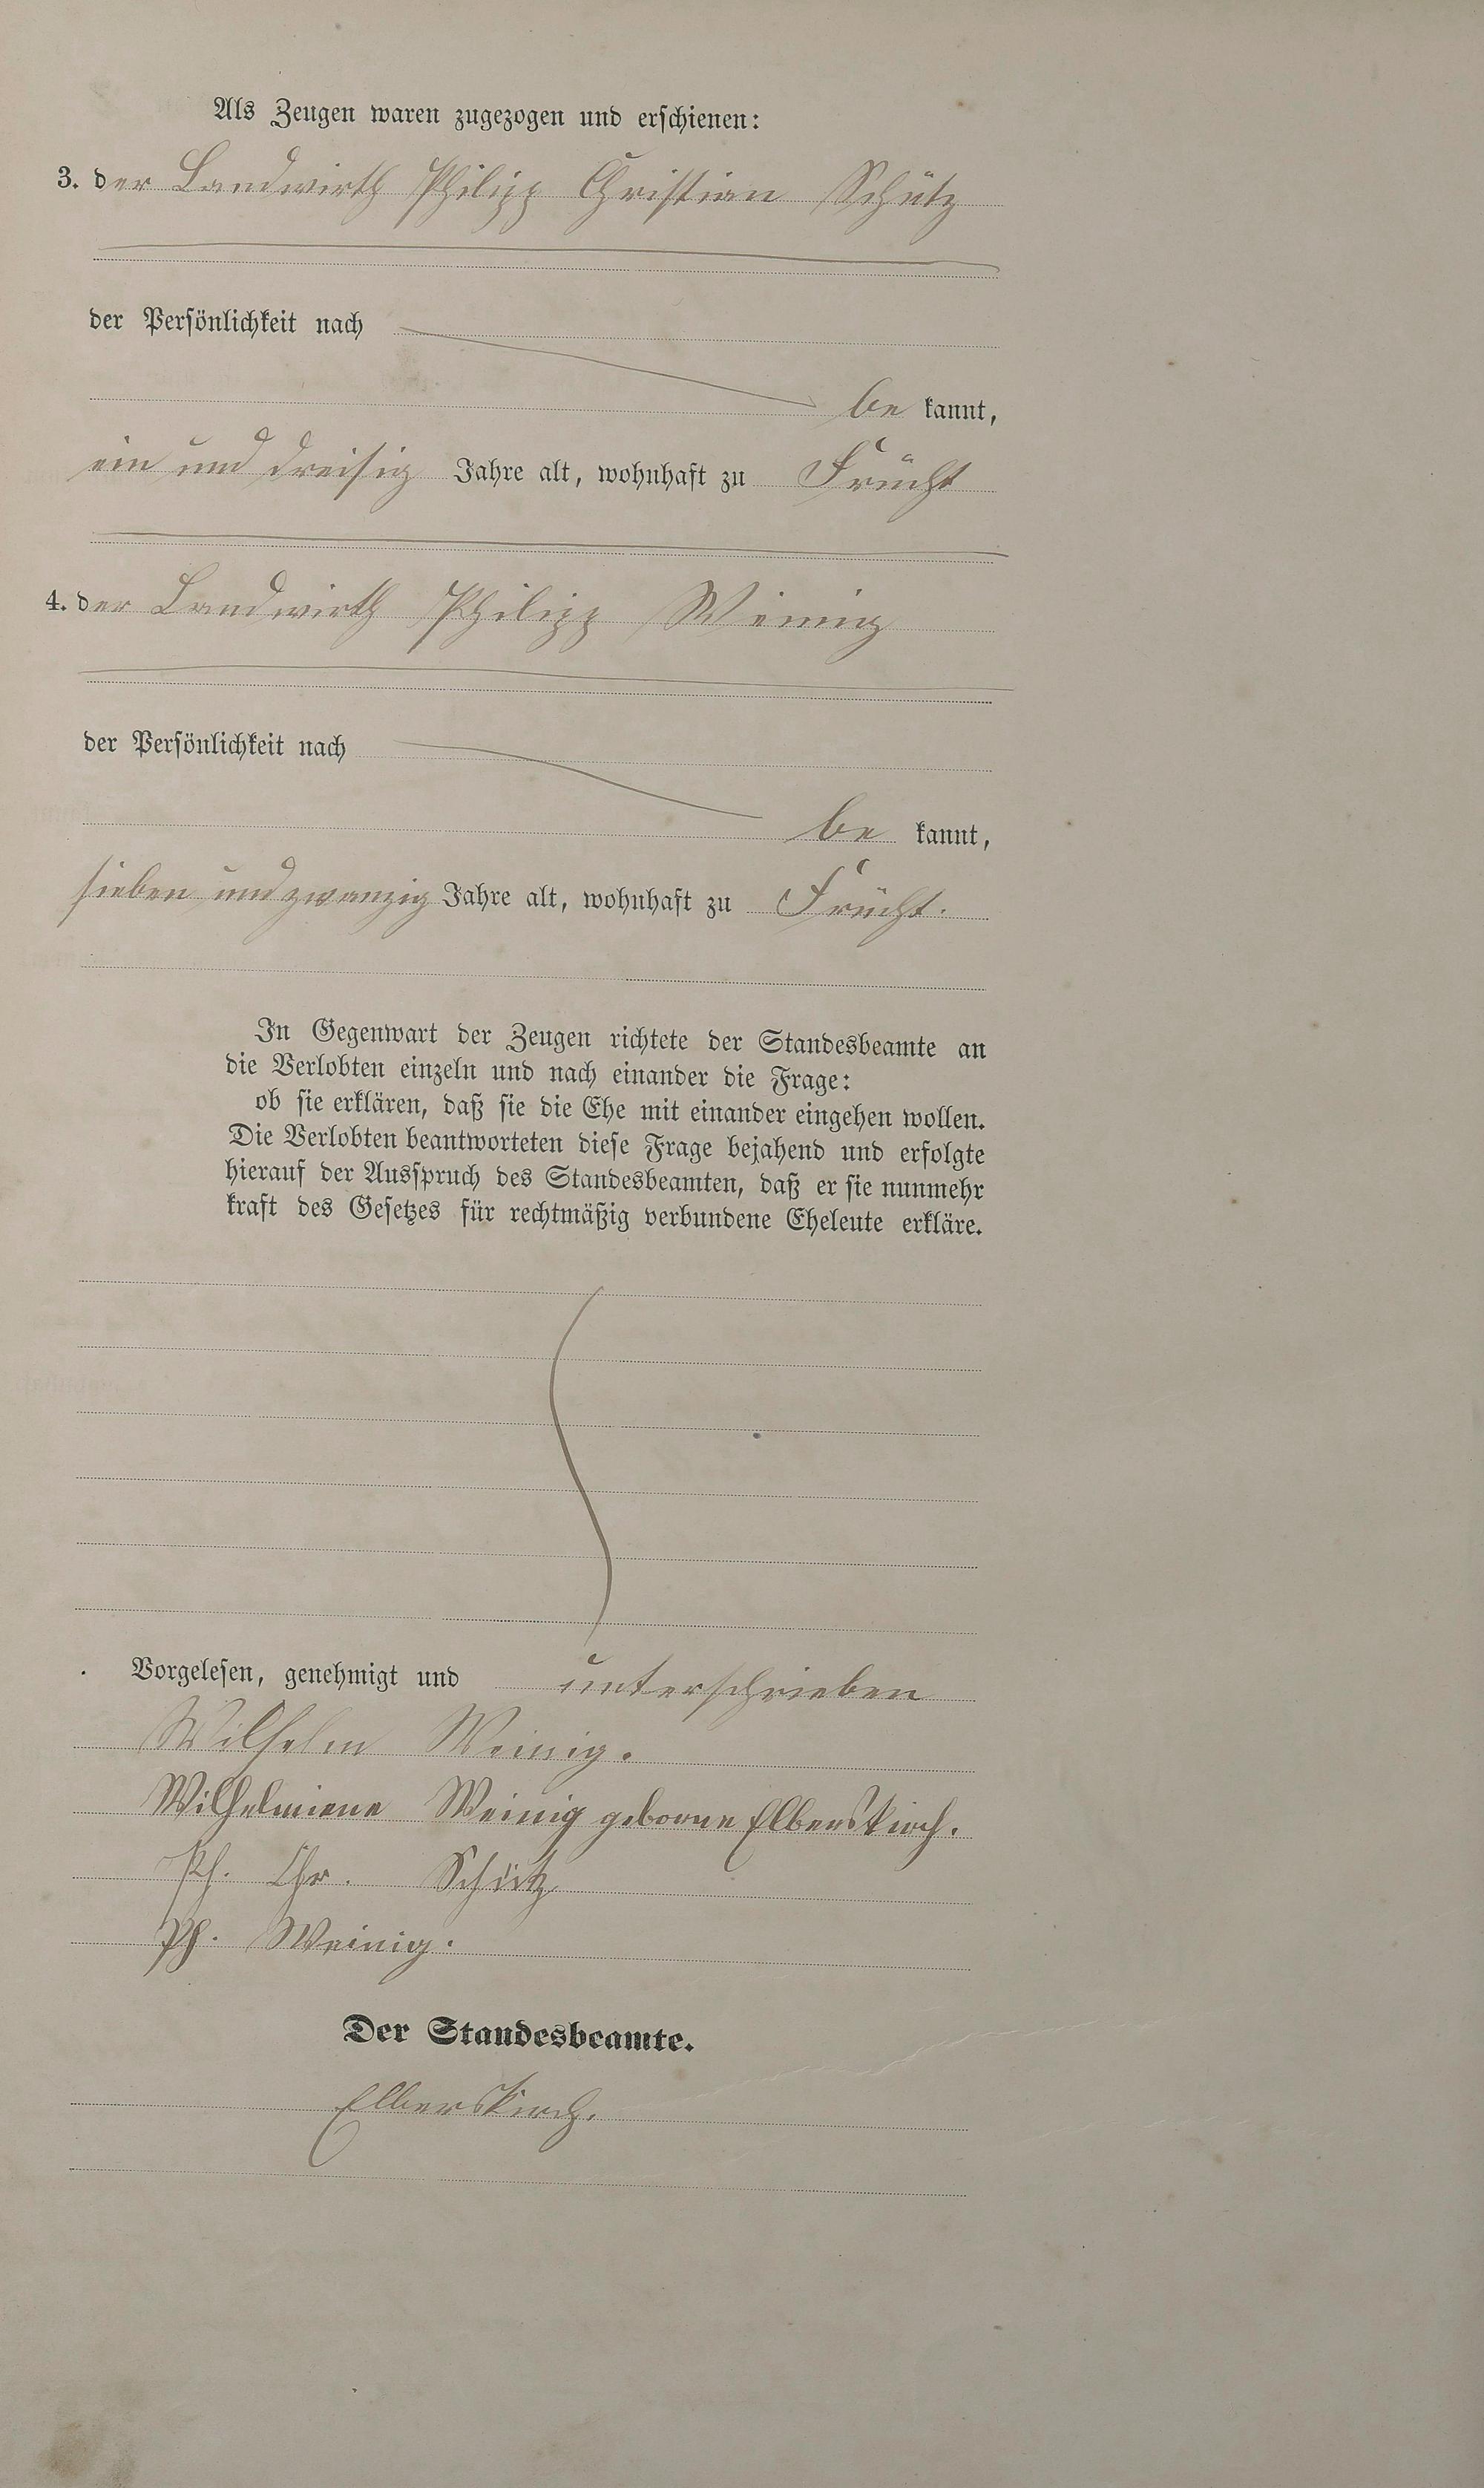 Als Zeugen waren zugezogen und erschienen:
3. der Landwirth Philipp Christian Schütz
der Persönlichkeit nach
be kannt,
ein und dreisig Jahre alt, wohnhaft zu Frücht
4. der Landwirth Philipp Weinig
der Persönlichkeit nach
be kannt,
sieben und zwanzig Jahre alt, wohnhaft zu Frücht.
In Gegenwart der Zeugen richtete der Standesbeamte an
die Verlobten einzeln und nach einander die Frage:
ob sie erklären, daß sie die Ehe mit einander eingehen wollen.
Die Verlobten beantworteten diese Frage bejahend und erfolgte
hierauf der Ausspruch des Standesbeamten, daß er sie nunmehr
kraft des Gesetzes für rechtmäßig verbundene Eheleute erkläre.
Vorgelesen, genehmigt und unterschrieben
Wilhelm Weinig.
Wilhelmiene Weinig geborne Elberskirch.
Ph. Chr. Schütz
Ph. Weinig.
Der Standesbeamte.
Elberskirch.